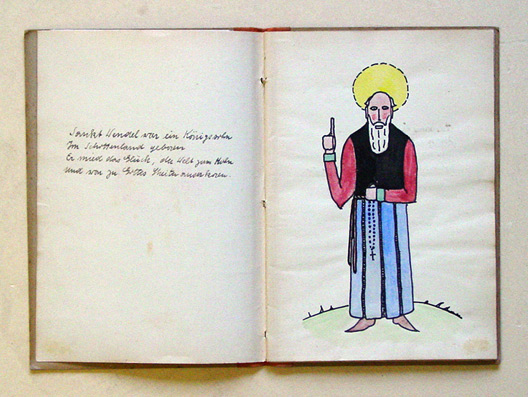 Sankt Wendel war ein Königssohn
Im Schottenland geboren
Er mied das Glück, die Welt zum Hohn
und war zu Gottes Streiter auserkoren.